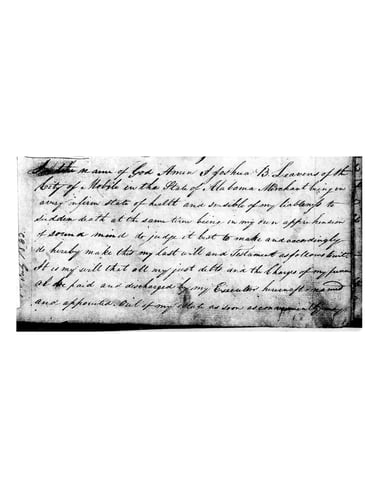 In the name of God Amen I Joshua B. Leavens of the
City of Mobile in the State of Alabama Merchant being in
a very infirm state of health and sensible of my liableness to
sudden death at the same time being in my own apprehension
of sound mind do judge it best to make and accordingly
do hereby make this my last will and Testament as follows
It is my will that all my just debts and the Charges of my
be paid and discharged by my Executor herein after named
and appointed. Out of my estate as soon as conveniently may